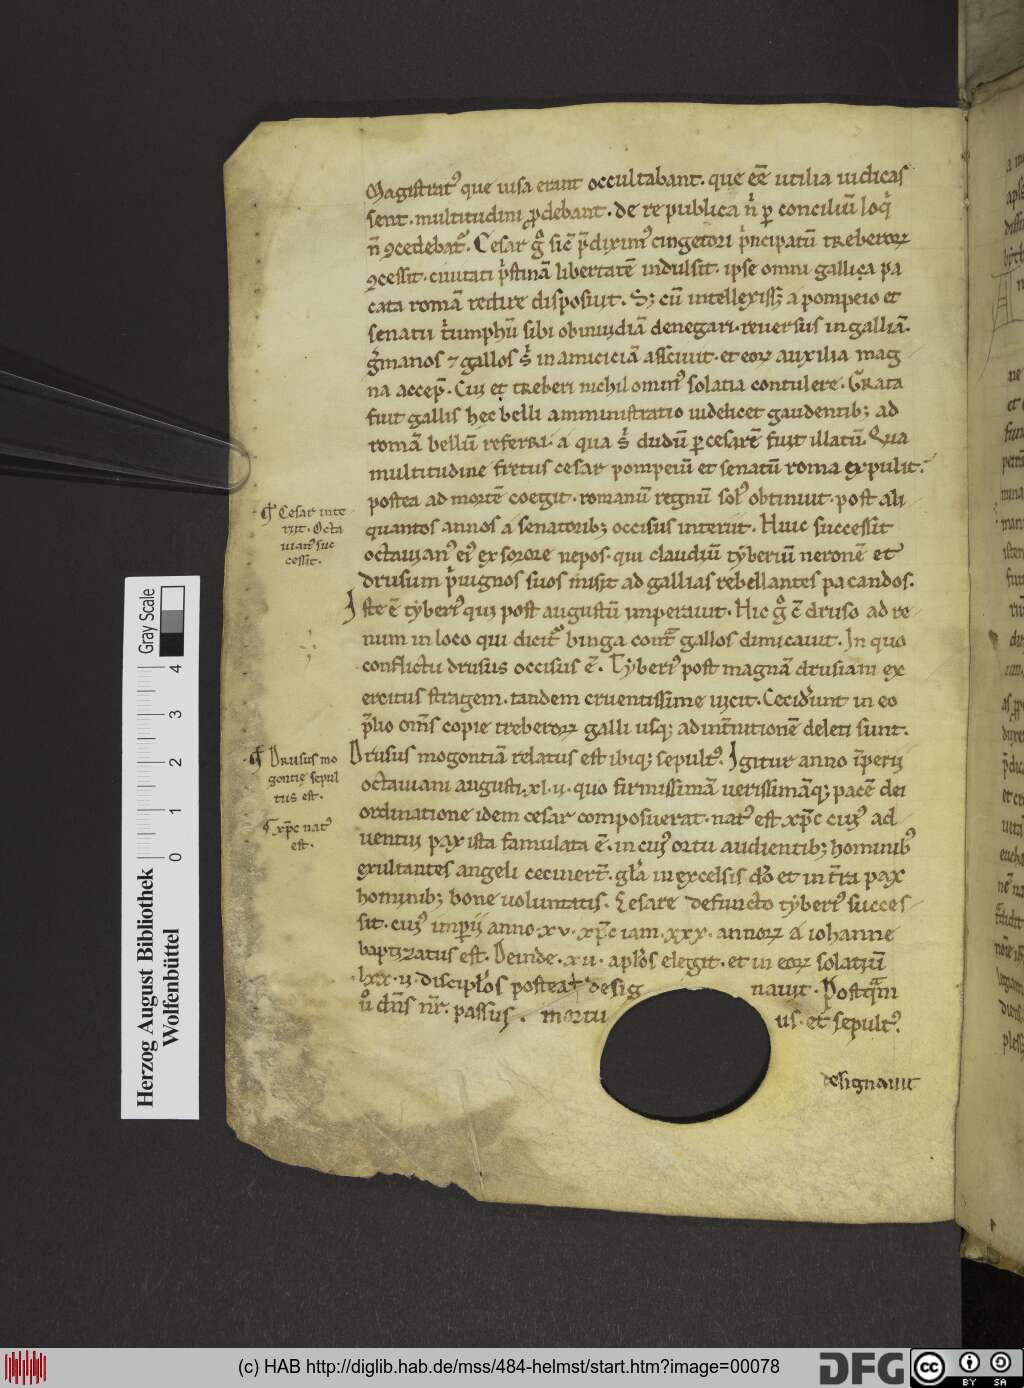 Magistratꝰ que uisa erunt occultabant. que eē utilia iudicas
sent. multitudini ꝓdebant. de re publica ñ ꝑ conciliū loqͥ
n̄ ꝯcedebat᷑. Cesar gͦ sic̄ p̄diximꝰ cingetori pͥncipatū trebeꝛoꝝ
ꝯcessit. ciuitati pͥstinā libertatē indulsit. ipse omni gallica pa
cata romā redire disposiuit. S; cū intellexiss; a pompeio et
senatu tͥumphū sibi obiuidiā denegari. reuersus in galliā.
gͥmanos ⁊ gallos sͥ in amiciciā assciuit. et eoꝝ auxilia mag
na accep̄. Cui et treberi nichil ominꝰ solatia contulere. Grata
fuit gallis hec belli amministratio uidelicet gaudentib; ad
romā bellū referri. a qua sͥ dudū ꝑ cesarē fuit illatū. Qua
multitudine fretus cesar pompeiū et senatū roma expulit.
postea ad mortē coegit. romanū regnū solꝰ obtinuit. post ali
quantos annos a senatorib; occisus interiit. Huic successit
octauianꝰ eiꝰ ex sorore nepos. qui claudiū tẏberiū neronē et
drusum pͥuignos suos misit ad gallias rebellantes pacandos.
Iste ē tẏberiꝰ qui post augustū imperauit. Hic gͦ c̄ druso ad re
num in loco qui dicit᷑ binga cont̄ gallos dimicauit. In quo
conflictu drusus occisus ē. Tẏberiꝰ post magnā drusiani ex
ercitus stragem. tandem cruentissime uicit. Ceciderunt in eo
p̄lio om̄s copie treberoꝝ galli usq; ad int̄nitionē deleti sunt.
Drusus mogontiā relatus est ibiq; sepultꝰ. Igitur anno īperii
octauiani augusti. xl. ii. quo firmissimā uerissimāq; pacē dei
ordinatione idem cesar composuerat. natꝰ est xp̄c cuiꝰ ad
uentui pax ista famulata ē. in cuiꝰ ortu audientib; hominibꝰ
exultantes angeli cecinert̄. gl̄a in excelsis do et in t̄ra pax
hominib; bone uoluntatis. Cesare defuncto tẏberiꝰ succes
sit. cuiꝰ imꝑii anno. xv. xp̄c iam. xxx. annoꝝ a iohanne
baptizatus est. Deinde. xii. apl̄os elegit. et in eoꝝ solatiū
lxx. ii. discipl̄os postea desig nauit. Postqͣm
ů dn̄s nr̄. passus. mortu us. et sepultꝰ.
designauit
¶ Cesar inte
riit. Octa
uianꝰ suc
cessit.
¶ Drusus mo
gontię sepul
tus est.
¶ xp̄c natꝰ
est.
Gray Scale
4 3 2 1 0
Herzog August Bibliothek
Wolfenbüttel
(c) HAB http://diglib.hab.de/mss/484-helmst/start.htm?image=00078
DFG
cc BY SA